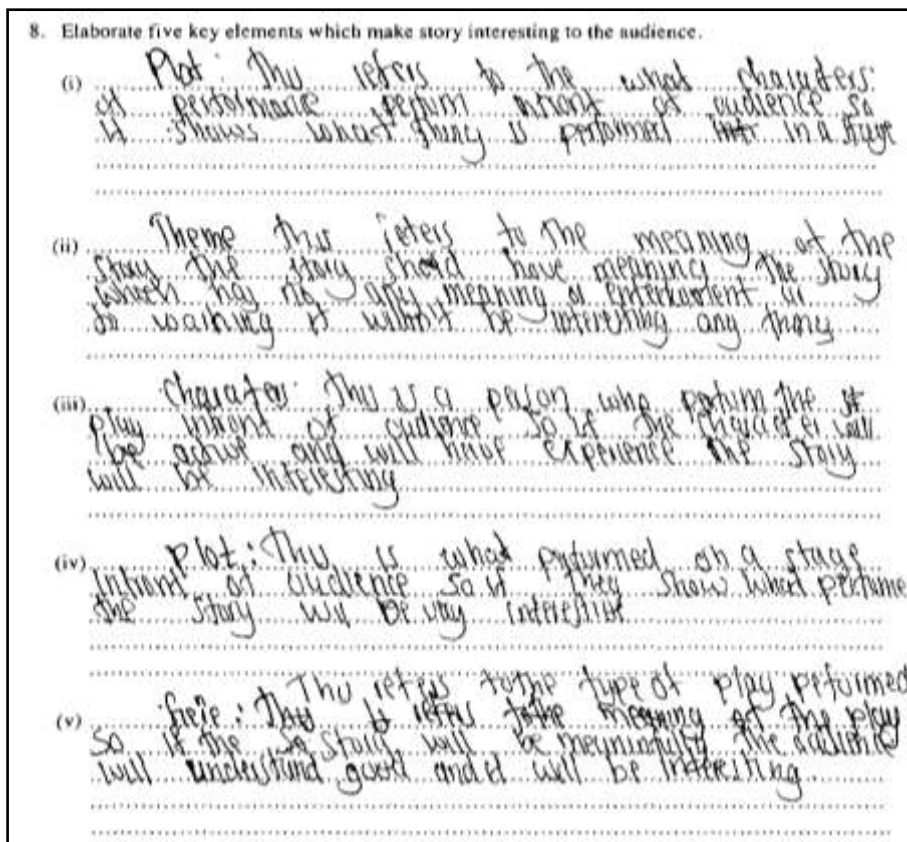 8. Elaborate five key elements which make story interesting to the audience.
(i) Plot: This refers to the what characters
of performance perfum infront of audience so
it shows what thing is performed in a stage
(ii) Theme this refers to the meaning of the
story the story should have meaning the story
which has no any meaning or entertainment
so waching it willn't be interesting any thing
(iii) Charater: This is a person who perfum the
play infront of audience so if the character will
be active and will have experience the story
will be interesting
(iv) Plot: This is what performed on a stage
infront of audience so if they show what perfume
the story will be very interesting
This refers to the type of play performed
(v) so if the story will be meaningfull the audience
will understand good and it will be interesting.